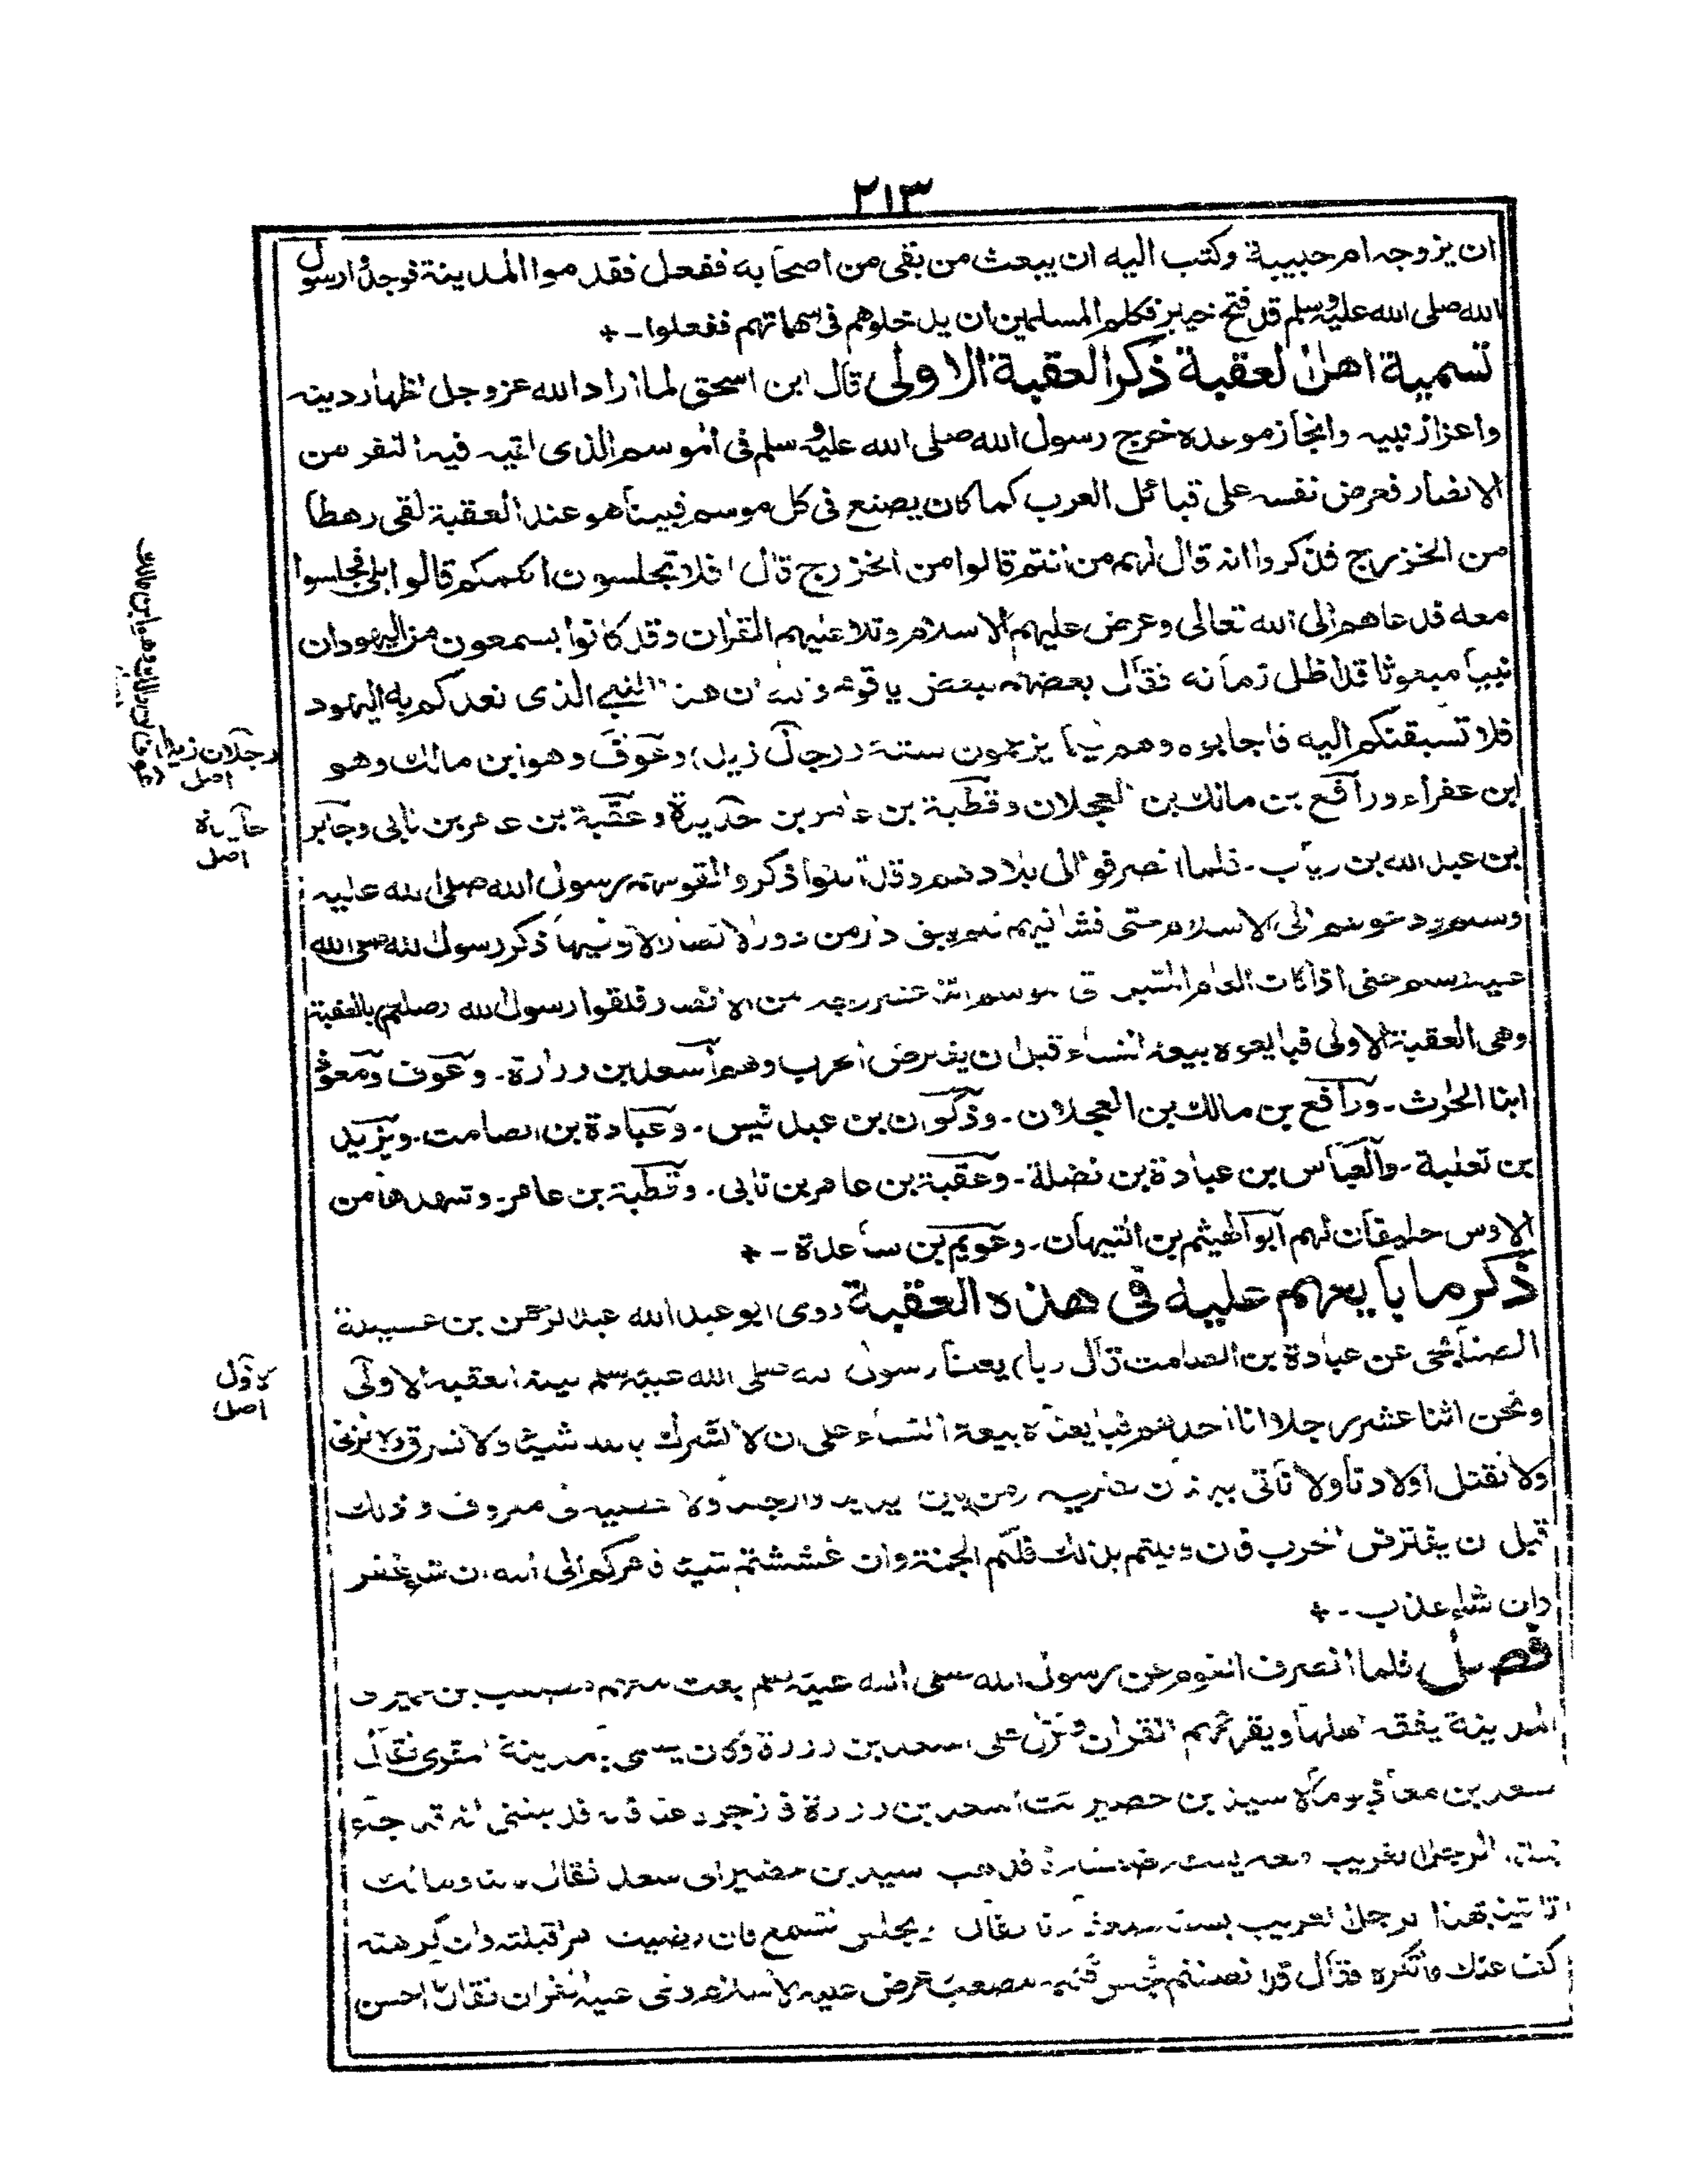 ٢١٣
ان يزوجه ام حبيبة وكتب اليه ان يبعث من بقى من اصحابه ففعل فقدموا المدينة فوجدوا رسول
الله صلى الله عليه وسلم قد فتح خيبر فكلم المسلمين ان يدخلوهم فى سهماتهم ففعلوا -
تسمية اهل العقبة ذكر العقبة الاولى قال ابن اسحق لما اراد الله عزوجل اظهار دينه
واعزاز نبيه وانجاز موعده خرج رسول الله صلى الله عليه وسلم فى الموسم الذى لقيه فيه النفر من
الانصار فعرض نفسه على قبائل العرب كما كان يصنع فى كل موسم فبينا هو عند العقبة لقى رهطا
من الخزرج فذكروا انه قال لهم من انتم قالوا من الخزرج قال افلا تجلسون اكلمكم قالوا بلى فجلسوا
معه فدعاهم الى الله تعالى وعرض عليهم الاسلام وتلا عليهم القران وقد كانوا يسمعون من اليهود ان
نبيا مبعوثا قد اظل زمانه فقال بعضهم لبعض يا قوم والله ان هذا النبى الذى تعدكم به اليهود
فلا تسبقنكم اليه فاجابوه وهم فيما يزعمون ستة (رجال زيد) وعوف وهو ابن مالك وهو
ابن عفراء ورافع بن مالك بن العجلان وقطبة بن عامر بن حديدة وعقبة بن عامر بن نابى وجابر
بن عبد الله بن رياب - فلما انصرفوا الى بلادهم وقد امنوا ذكروا لقومهم رسول الله صلى الله عليه
وسلم ودعوهم الى الاسلام حتى فشا فيهم فلم يبق دار من دور الانصار الا وفيها ذكر رسول الله صلى الله
عليه وسلم حتى اذا كان العام المقبل وافى الموسم اثنا عشر رجلا من الانصار فلقوا رسول الله (صلعم) بالعقبة
وهى العقبة الاولى فبايعوه بيعة النساء قبل ان يفترض الحرب وهم اسعد بن زرارة - وعوف ومعوذ
ابنا الحرث - ورافع بن مالك بن العجلان - وذكوان بن عبد قيس - وعبادة بن الصامت - ويزيد
بن ثعلبة - والعباس بن عبادة بن نضلة - وعقبة بن عامر بن نابى - وقطبة بن عامر - وشهدها من
الاوس حليفان لهم ابو الهيثم بن التيهان - وعويم بن ساعدة -
ذكر ما بايعهم عليه فى هذه العقبة روى ابو عبد الله عبد الرحمن بن عسيلة
الصنابحى عن عبادة بن الصامت قال (بايعنا رسول الله صلى الله عليه وسلم ليلة العقبة الاولى
ونحن اثنا عشر رجلا انا احدهم فبايعناه بيعة النساء على ان لا نشرك بالله شيئا ولا نسرق ولا نزنى
ولا نقتل اولادنا ولا ناتى ببهتان نفتريه من بين ايدينا وارجلنا ولا نعصيه فى معروف وذلك
قبل ان يفترض الحرب فان وفيتم بذلك فلكم الجنة وان غششتم شيئا فامركم الى الله ان شاء غفر
وان شاء عذب -
فصل فلما انصرف القوم عن رسول الله صلى الله عليه وسلم بعث معهم مصعب بن عمير الى
المدينة يفقه اهلها ويقرئهم القران فنزل على اسعد بن زرارة وكان يسمى بالمدينة المقرى فقال
سعد بن معاذ يوما لاسيد بن حضير ائت اسعد بن زرارة فازجره عنا فانه قد بلغنى انه قد جاء
الرجل الغريب معه فذهب اسيد بن حضير الى اسعد فقال ما لنا ومالك
تاتينا بهذا الرجل الغريب فقال او تجلس فتسمع فان رضيت امرا قبلته وان كرهته
كف عنك ما تكره فقال قد انصفتم فجلس مصعب فعرض عليه الاسلام وتلى عليه القران فقال ما احسن
رجلان زيد)
اصل
اصل
الاول
اصل